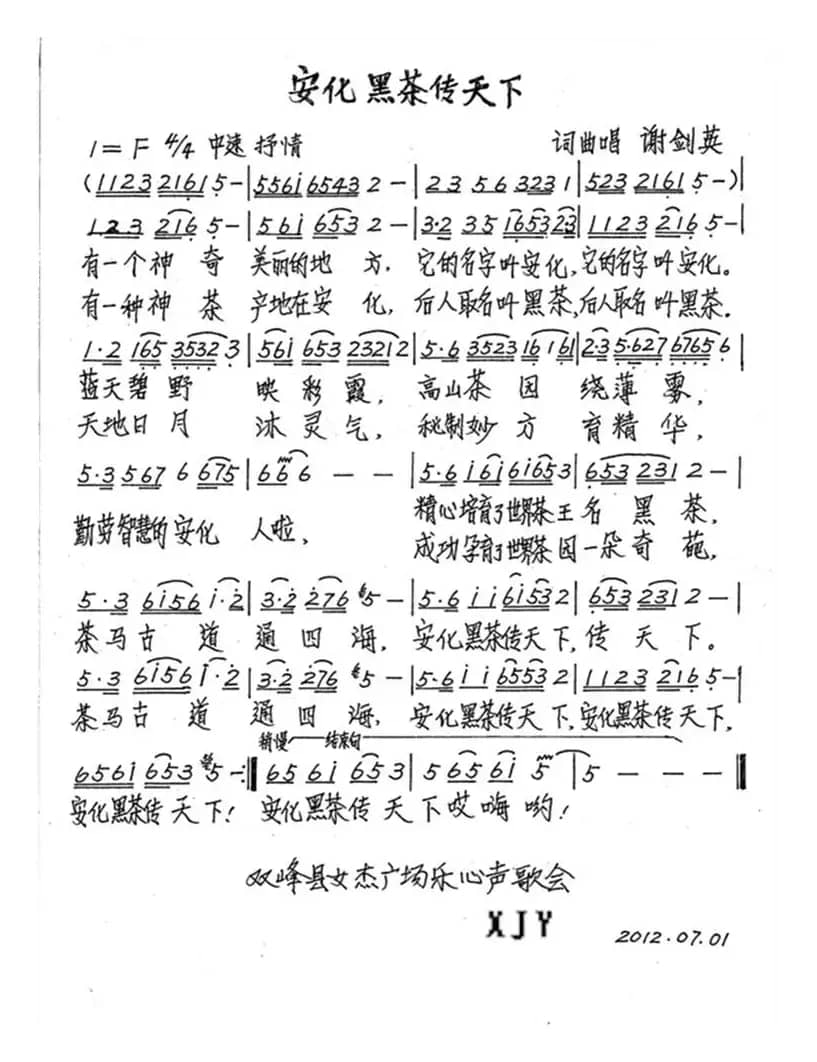 安化黑茶传天下
1=F 4/4 中速 抒情 词曲唱 谢剑英
(1123 2161 5-|5561 6543 2-|23 56 323 1|523 2161 5-)|
1.23 216 5-|561 653 2-|3·2 35 1653 23|1123 216 5-|
有一个神奇 美丽的地方. 它的名字叫安化,它的名字叫安化。
有一种神茶 产地在安化, 后人取名叫黑茶,后人取名叫黑茶.
1·2 165 3532 3|561 653 23212|5·6 3523 16 161|2·3 5·627 67656|
蓝天碧野 映彩霞, 高山茶园 绕薄雾,
天地日月 沐灵气, 秘制妙方 育精华,
5·3 567 6 675|666 - -|5·6 161 61653|653 231 2-|
勤劳智慧的安化 人啦, 精心培育了世界茶王名黑茶,
成功孕育了世界茶园一朵奇葩,
5·3 6156 1·2|3·2 276 5-|5·6 1161532|653 231 2-|
茶马古道 通四海, 安化黑茶传天下,传天下。
5·3 6156 1·2|3·2 276 5-|5·6 11 6553 2|1123 216 5-|
茶马古道 通四海, 安化黑茶传天下,安化黑茶传天下,
稍慢 结束句
6561 653 5-:‖65 61 653|56561 5|5---‖
安化黑茶传天下! 安化黑茶传天下哎嗨哟!
双峰县女杰广场乐心声歌会
XJY
2012.07.01